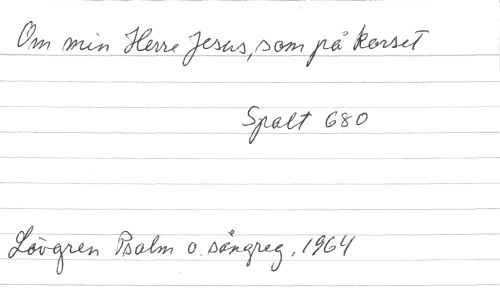 Om min Herre Jesus, som på korset
Spalt 680
Lövgren Psalm o. sångreg. 1964